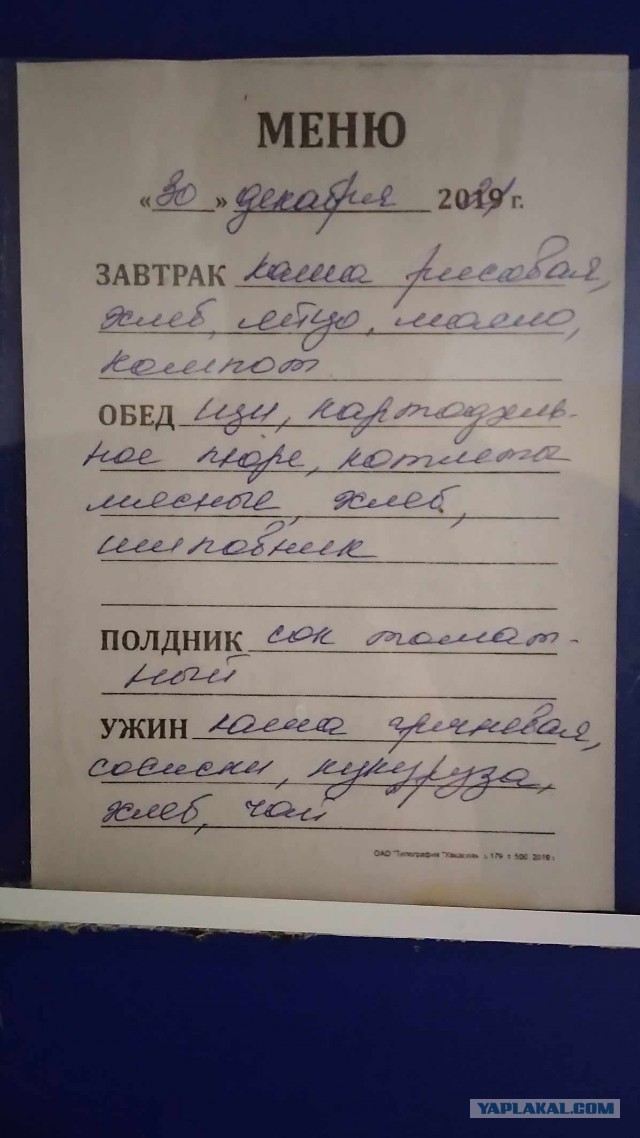 МЕНЮ
«30» декабря 2021 г.
ЗАВТРАК каша рисовая,
хлеб, яйцо, масло,
компот
ОБЕД щи, картофель-
ное пюре, котлета
мясные, хлеб,
шиповник
ПОЛДНИК сок томат-
ный
УЖИН каша гречневая,
сосиски, кукуруза,
хлеб, чай
ОАО "Типография "Хакасия" з. 179 т. 500 2019 г.
YAPLAKAL.COM